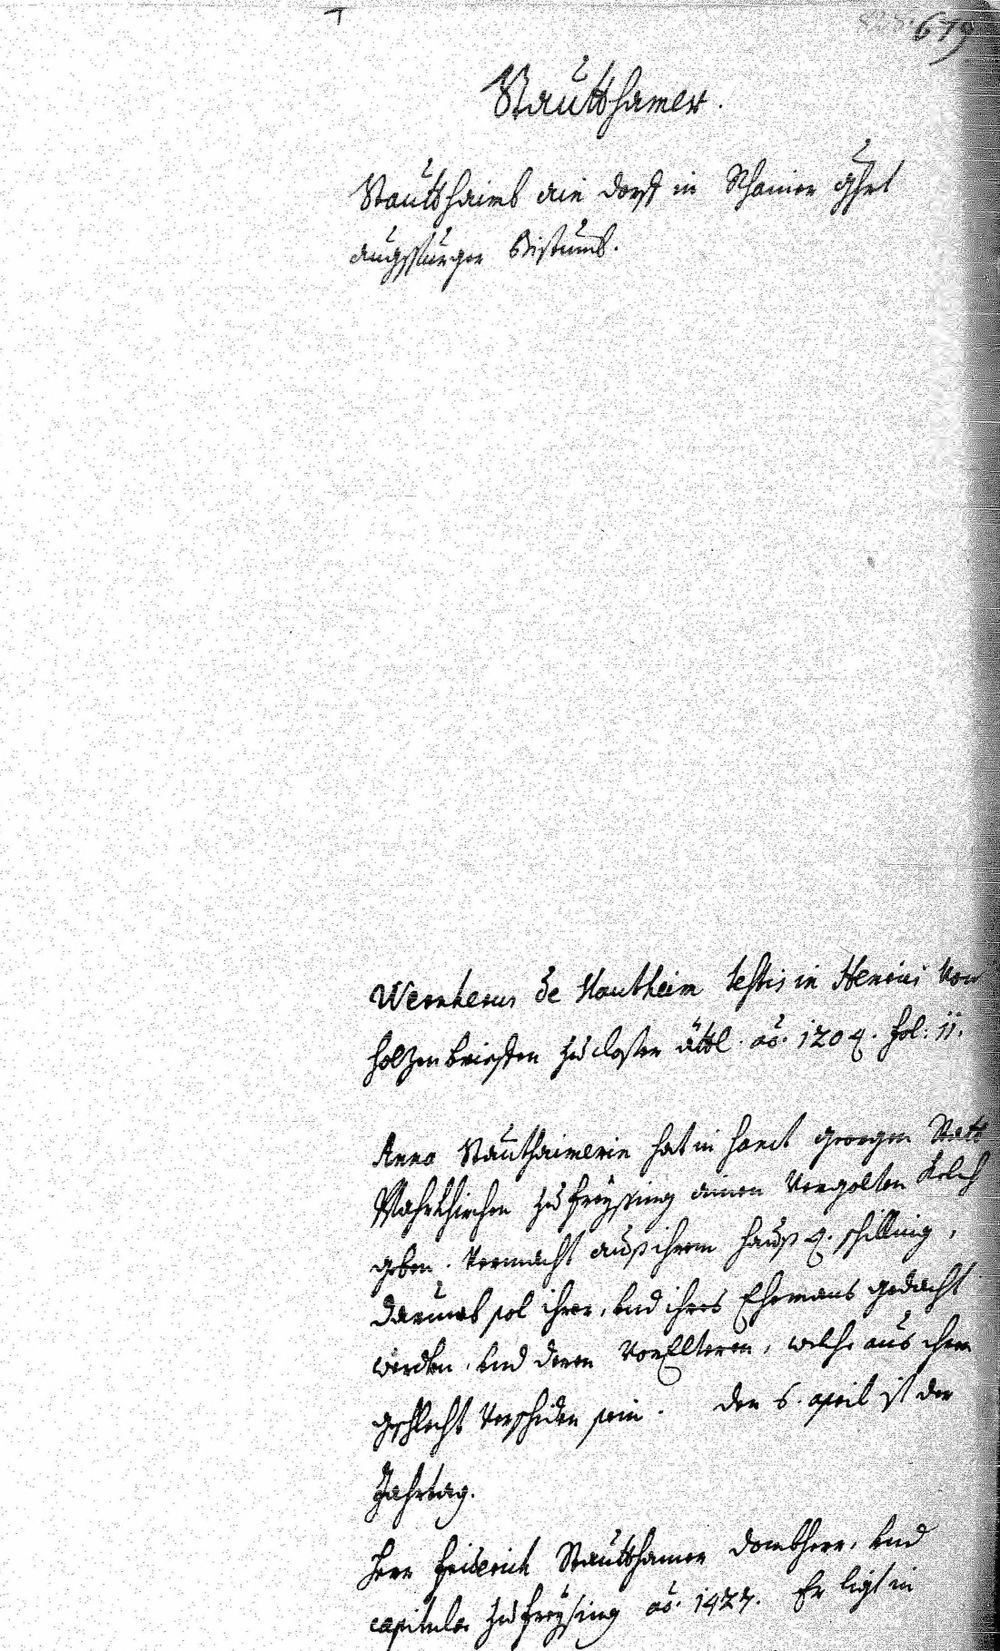 679
Stautshamer.
Stautshaimb ain dorff in Rhainer ghrt
augspurger Bistumb.
Wernherus de Stautheim testis in Henrici Von
holzen brieffen zu closter ättl. ao. 1204. fol: 11.
Anna Stauthaimerin hat in Sanct georgen Statt
Pfahrkhirchen zu freysing ainen Vergolten kelch
geben. Vermacht auß ihrem hauß 4. schilling,
darumb sol ihrer, und ihres Ehemans gedacht
werden. und deren VorElteren, welche aus ihrem
geschlecht Verschiden sein. den 6. april ist der
Jahrtag.
Herr friderich Stautshamer dombherr, und
capitular zu freysing ao. 1427. Er ligt in